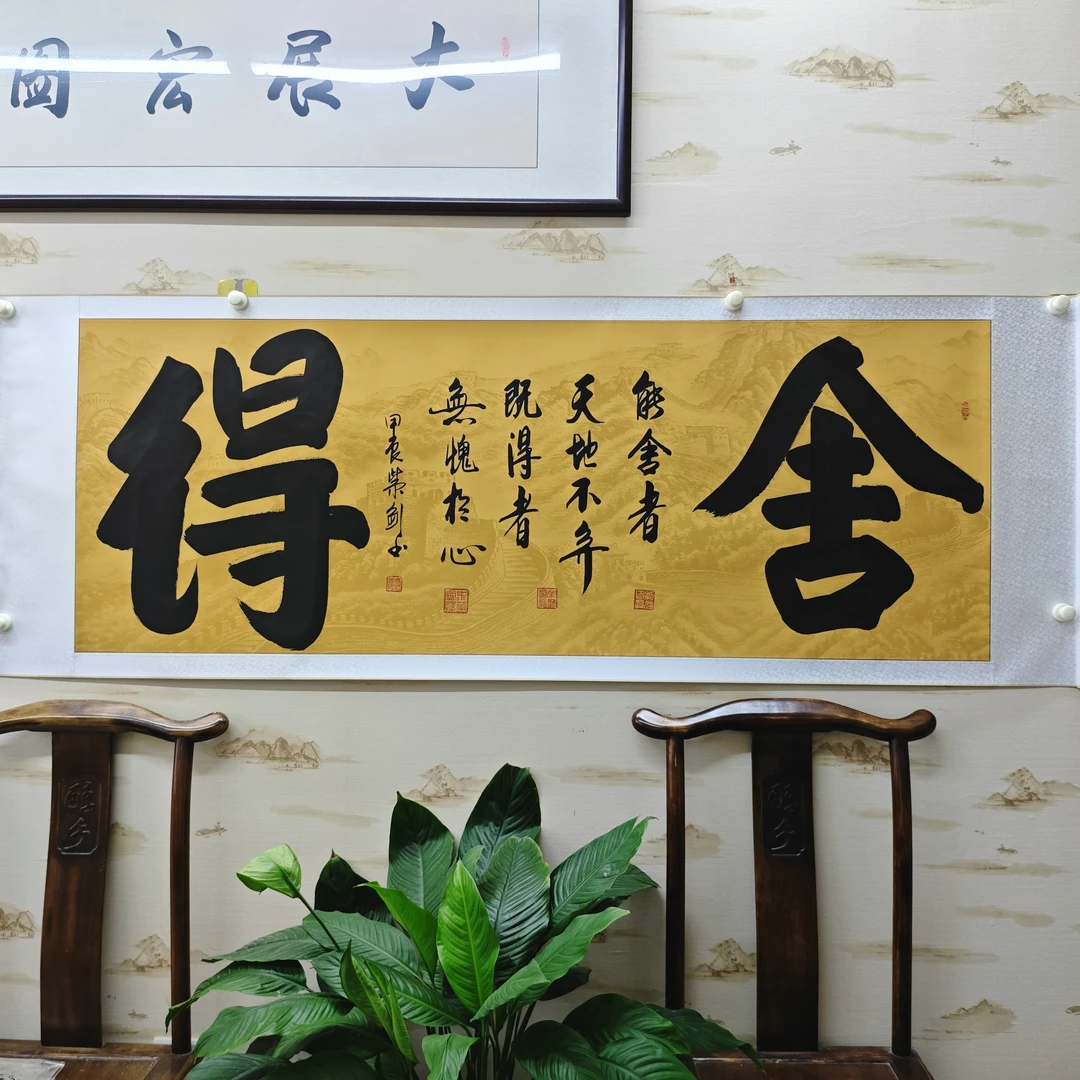 大展宏圖
舍得
能舍者
天地不弃
既得者
無愧於心
甲辰荣剑书
醉乡
醉乡